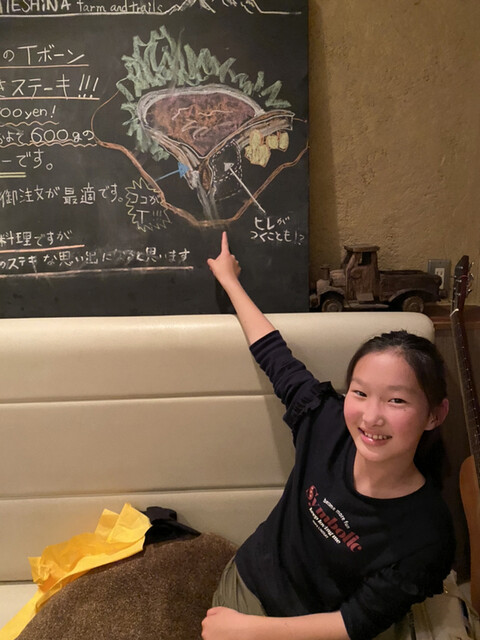 TESHINA farm and trails
のTボーン
きステーキ!!!
00yen!
およそ600gの
ーです。
御注文が最適です。
ココが
T!!!
ヒレが
つくことも!?
料理ですが
のステキな思い出になると思います
Symbolic